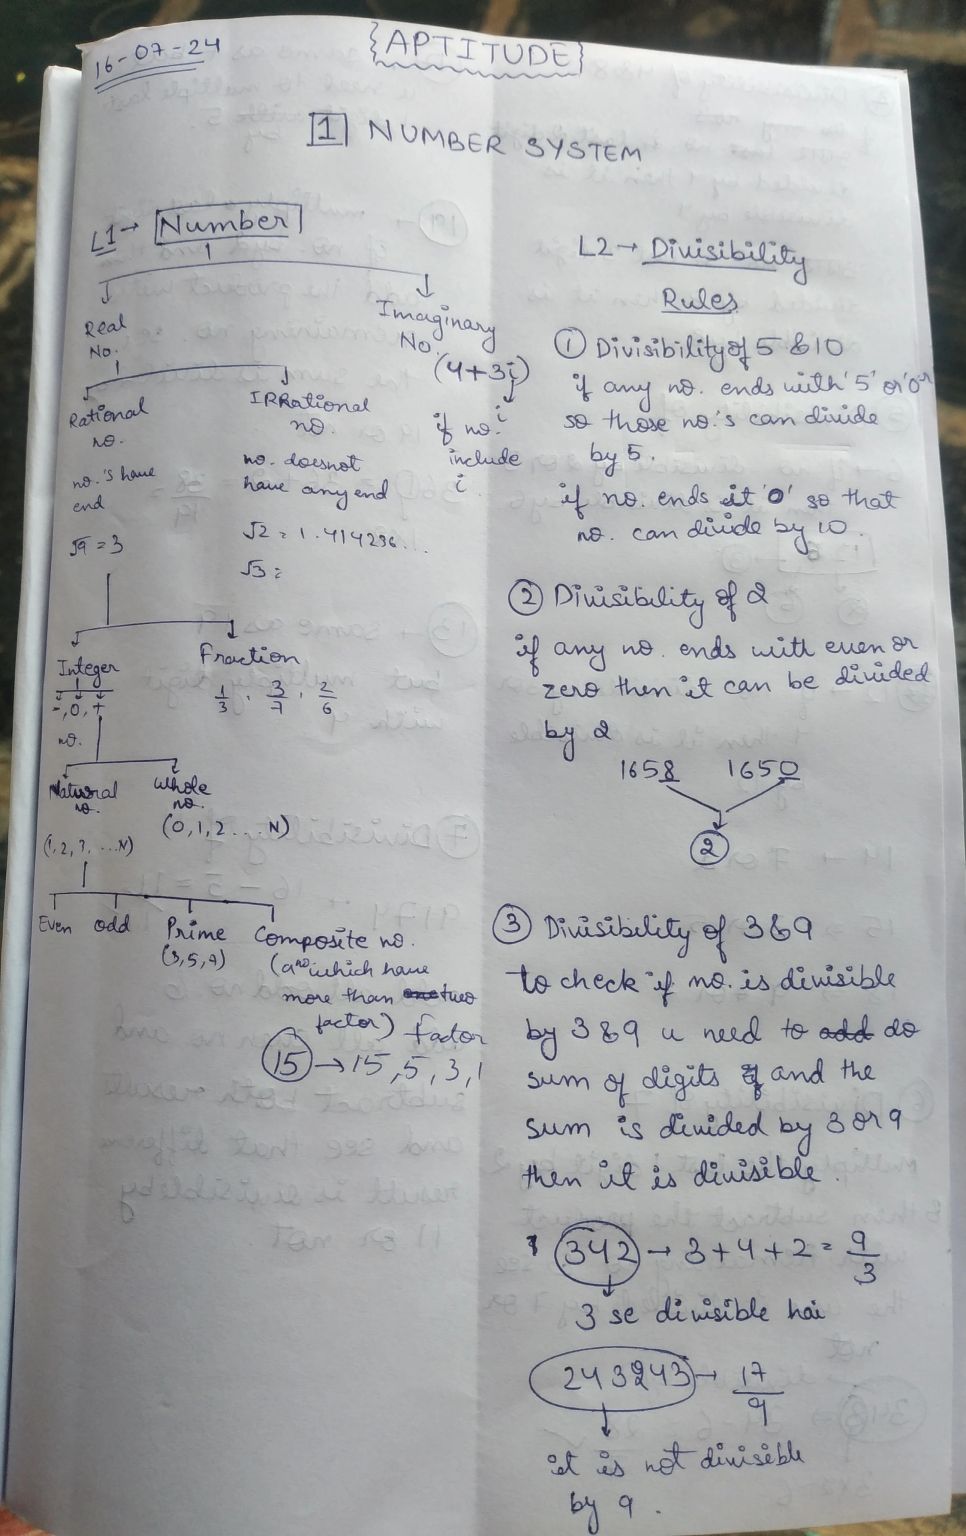 16-07-24
{APTITUDE}
1 NUMBER SYSTEM
L1→ Number
Real
No.
Imaginary
No.
(4+3i)
i
if no.
include
i
Rational
no.
no.'s have
end
√9 = 3
IRRational
no.
no. doesnot
have any end
√2 = 1.414236...
√3 =
Integer
-, 0, +
no.
Fraction
1/3, 3/7, 2/6
Natural
no.
(1, 2, 3, ...N)
Whole
no.
(0, 1, 2 ... N)
Even
odd
Prime
(3, 5, 7)
Composite no.
(a no which have
more than one two
factor) factor
15 → 15, 5, 3, 1
L2→ Divisibility
Rules
① Divisibility of 5 & 10
if any no. ends with '5' or '0'
so those no.'s can divide
by 5.
if no. ends it '0' so that
no. can divide by 10.
② Divisibility of 2
if any no. ends with even or
zero then it can be divided
by 2
1658 1650
2
③ Divisibility of 3 & 9
to check if no. is divisible
by 3 & 9 u need to add do
sum of digits and the
sum is divided by 3 or 9
then it is divisible.
342 → 3+4+2 = 9/3
3 se divisible hai
243243 → 17/9
it is not divisible
by 9.